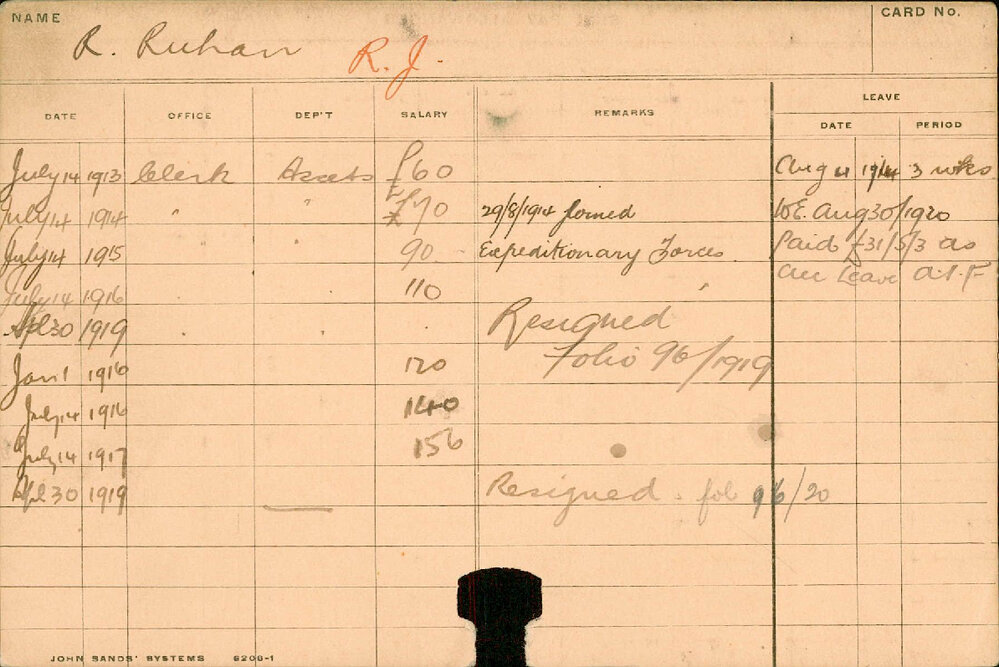 NAME
CARD No.
R. Ruhan R. J.
LEAVE
DATE OFFICE DEP'T SALARY REMARKS DATE PERIOD
July 14 1913 Clerk Assets £60 Aug 1914 3 wks
July 14 1914 " " £70 29/8/1914 Joined W.E. Aug 30/1920
July 14 1915 90 Expeditionary Forces Paid £31/5/3 as
July 14 1916 110 Leave A.I.F
Apl 30 1919 Resigned
Folio 96/1919
Jan 1 1916 120
July 14 1916 140
July 14 1917 156
Apl 30 1919 Resigned. fol 96/20
JOHN SANDS' SYSTEMS 6206-1